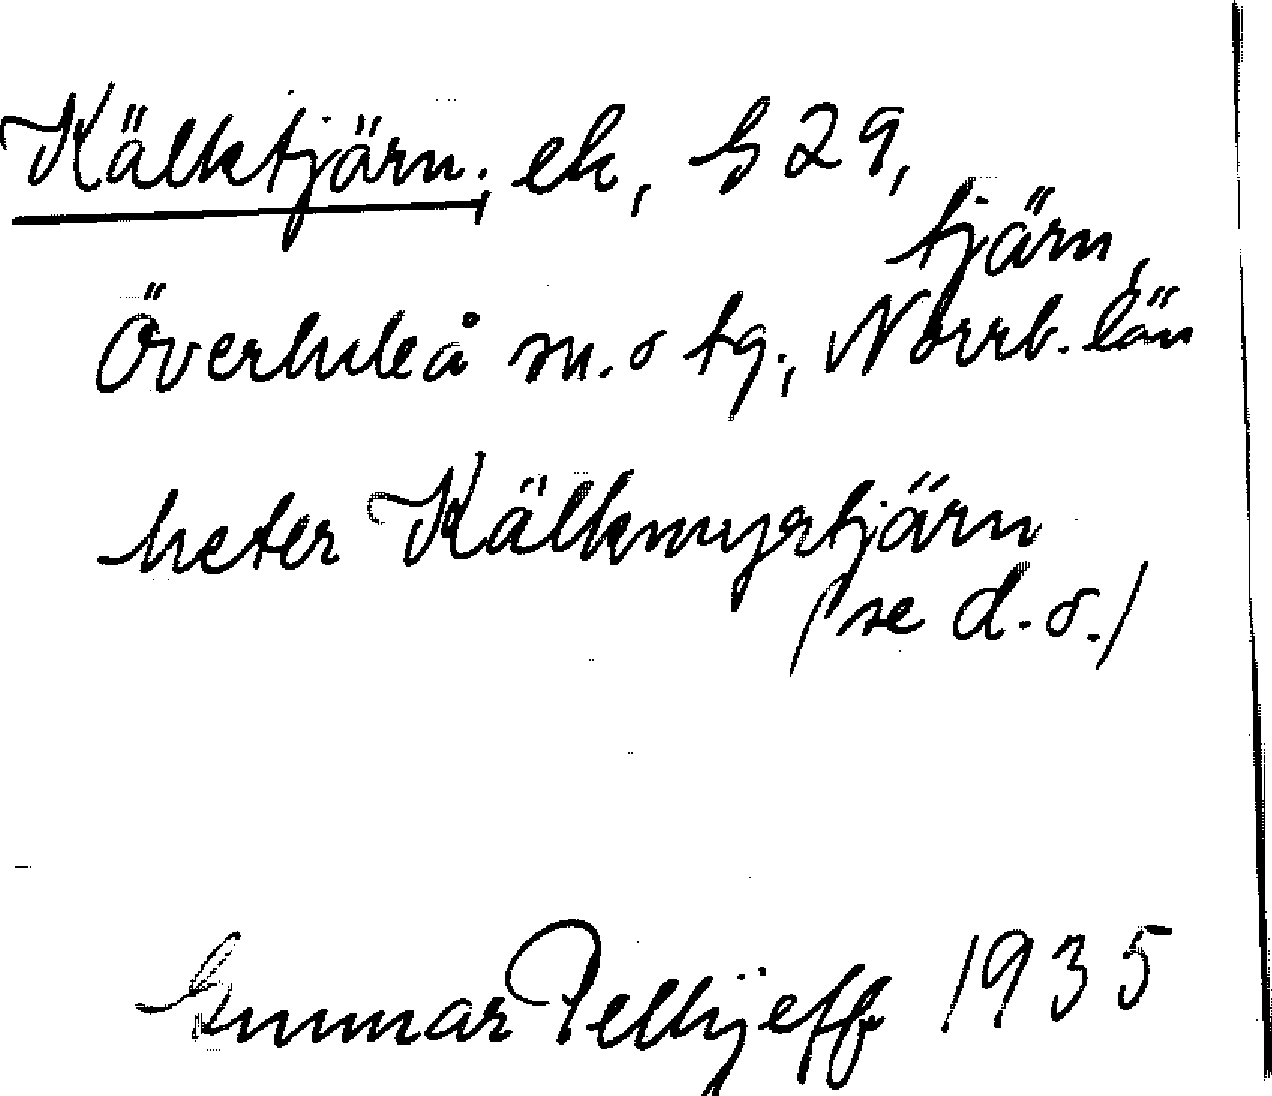 Kälktjärn, ek, b 29,
tjärn,
Överluleå sn. o tg., Norrb. län
heter Kälkmyrtjärn
(se d. o.)
Gunnar Pellijeff 1935